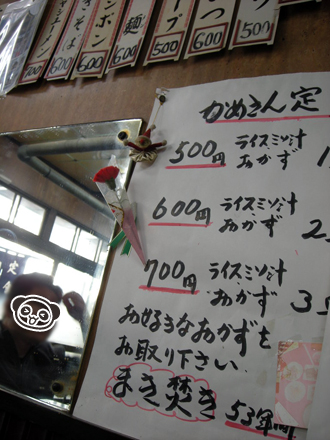 ャーハン
700
きそば
600
ンポン
600
麺
600
ープ
500
つ
600
500
かめきん定
500円 ライスミソ汁
おかず 1
600円 ライスミソ汁
おかず 2
700円 ライスミソ汁
おかず 3
お好きなおかずを
お取り下さい
まき焚き 53年